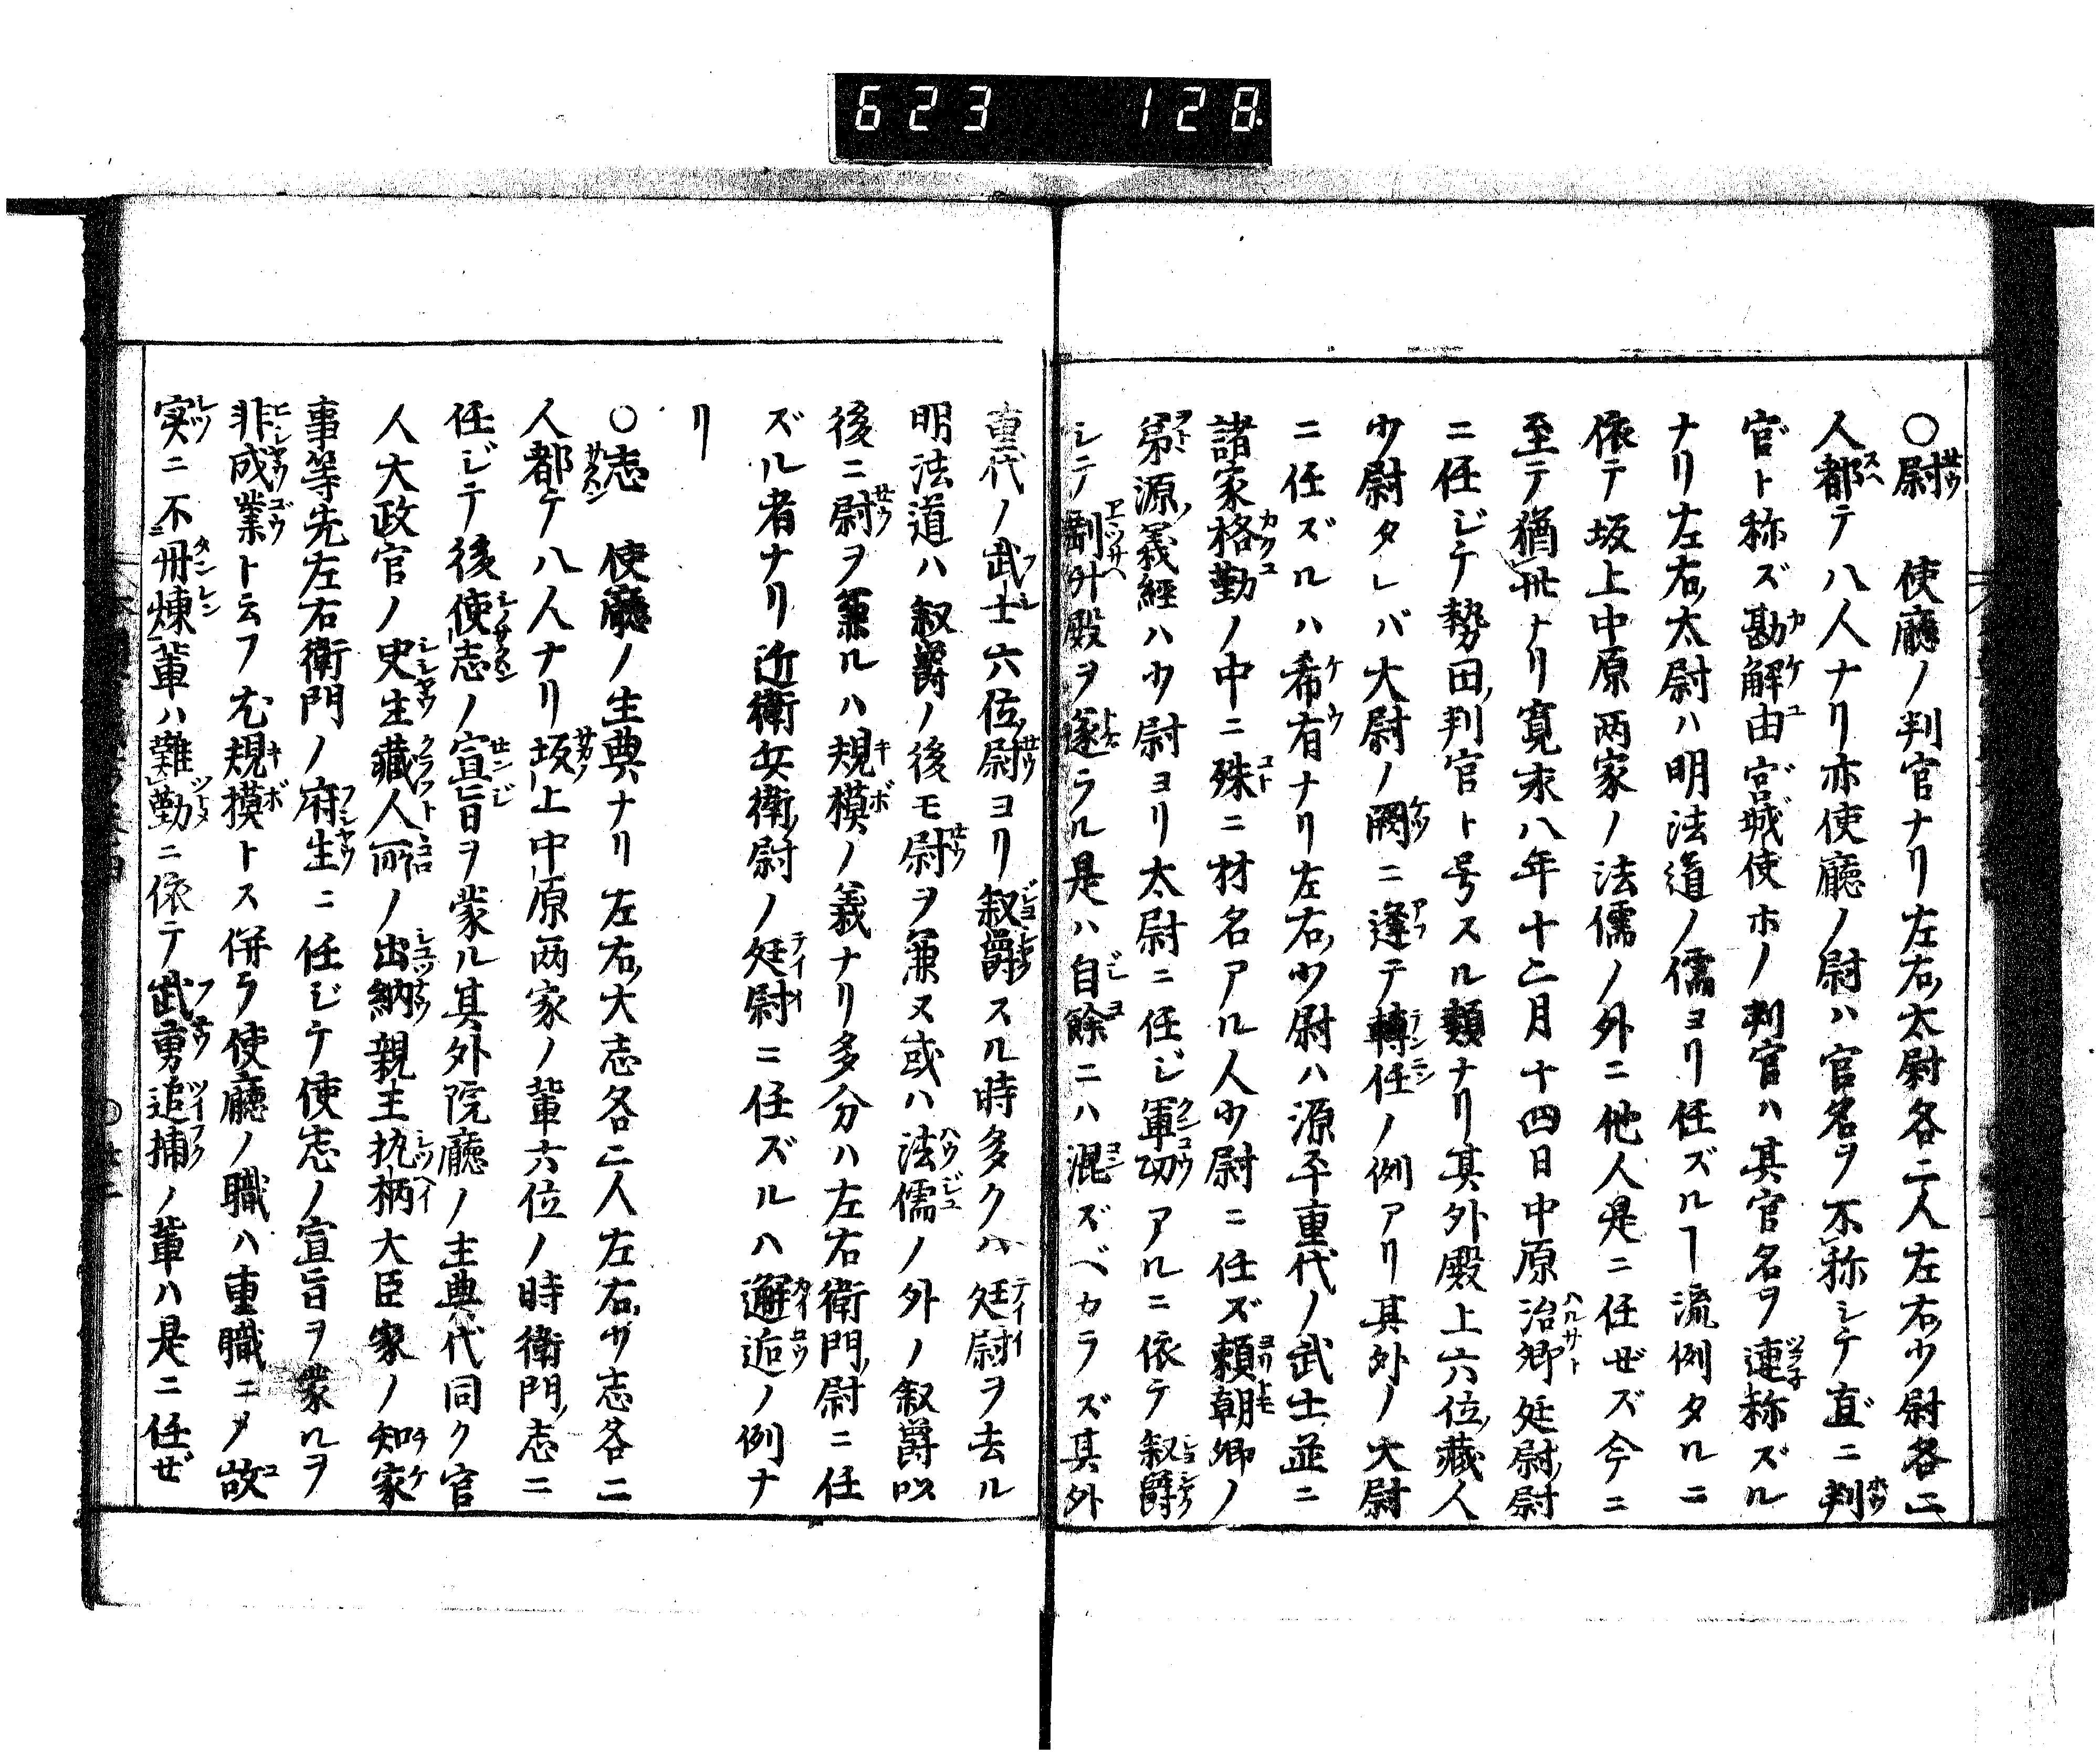 623 128
○尉 使廳ノ判官ナリ左右太尉各二人左右少尉各二
人都テ八人ナリ亦使廳ノ尉ハ官名ヲ不称シテ直ニ判
官ト称ズ勘解由宮城使ホノ判官ハ其官名ヲ連称ズル
ナリ左右太尉ハ明法道ノ儒ヨリ任ズルヿ流例タルニ
依テ坂上中原両家ノ法儒ノ外ニ他人是ニ任ゼズ今ニ
至テ猶卅ナリ寛永八年十二月十四日中原治卿廷尉尉
ニ任ジテ勢田判官ト号スル類ナリ其外殿上六位藏人
少尉タレバ大尉ノ闕ニ逢テ轉任ノ例アリ其外ノ大尉
ニ任ズルハ希有ナリ左右少尉ハ源平重代ノ武士並ニ
諸家格勤ノ中ニ殊ニ材名アル人少尉ニ任ズ頼朝卿ノ
弟源義經ハ少尉ヨリ太尉ニ任ジ軍功アルニ依テ叙爵
シテ剰外殿ヲ遂ラル是ハ自餘ニハ混ズベカラズ其外
重代ノ武士六位尉ヨリ叙爵スル時多クハ廷尉ヲ去ル
明法道ハ叙爵ノ後モ尉ヲ兼ヌ或ハ法儒ノ外ノ叙爵以
後ニ尉ヲ兼ルハ規模ノ義ナリ多分ハ左右衛門尉ニ任
ズル者ナリ近衛兵衛尉ノ廷尉ニ任ズルハ邂逅ノ例ナ
リ
○志 使廳ノ主典ナリ左右大志各二人左右少志各二
人都テ八人ナリ坂上中原両家ノ輩六位ノ時衛門志ニ
任ジテ後使志ノ宣旨ヲ蒙ル其外院廳ノ主典代同ク官
人大政官ノ史生藏人所ノ出納親王執柄大臣家ノ知家
事等先左右衛門ノ府生ニ任ジテ使志ノ宣旨ヲ蒙ルヲ
非成業ト云フ尤規摸トス併ラ使廳ノ職ハ重職ニメ故
実ニ不冊煉輩ハ難勤ニ依テ武勇追捕ノ輩ハ是ニ任ゼ